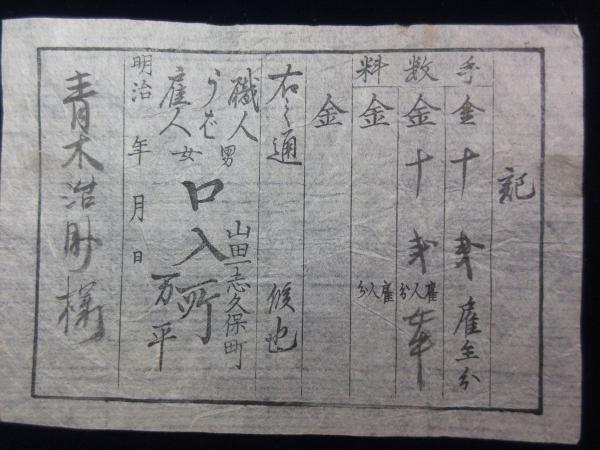 記
手数料
金十弐 雇主分
金十弐 雇人分
金 雇人分
金
右之通 候也
職人 男
うば
雇人 女
口入所
山田一志久保町
万平
明治 年 月 日
青木浩助様